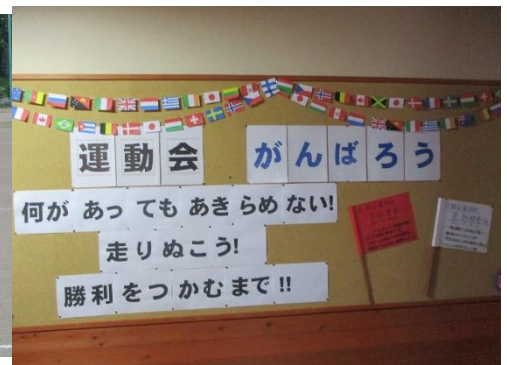 運動会 がんばろう
何があってもあきらめない!
走りぬこう!
勝利をつかむまで!!